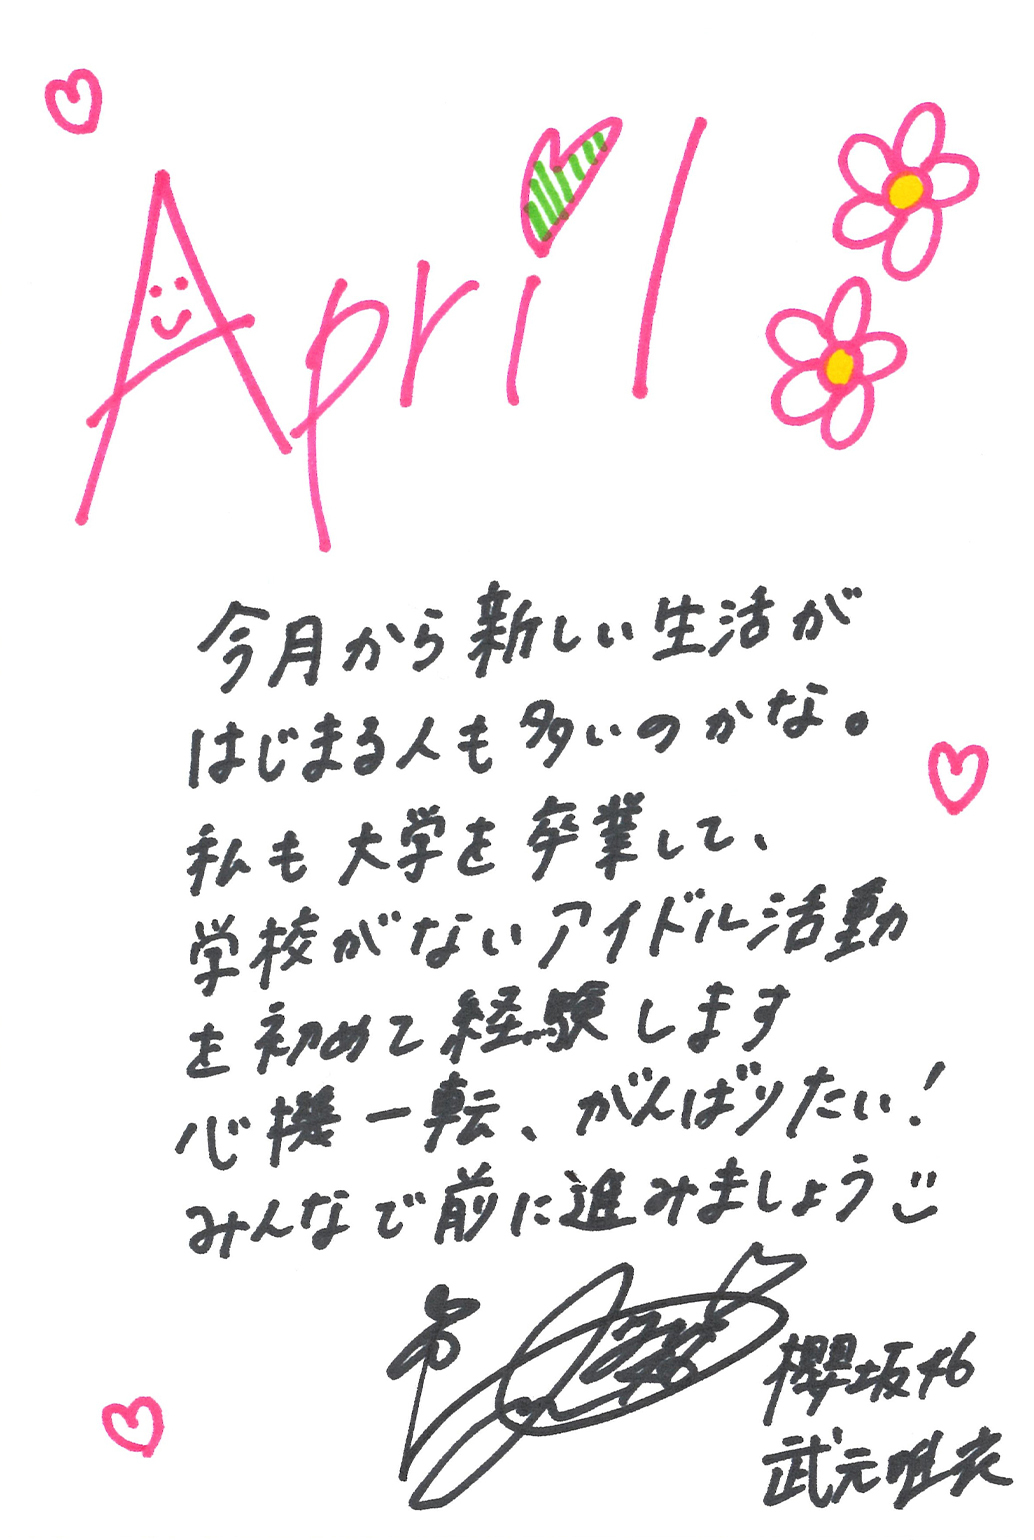 April
今月から新しい生活が
はじまる人も多いのかな。
私も大学を卒業して、
学校がないアイドル活動
を初めて経験します
心機一転、がんばりたい!
みんなで前に進みましょう
櫻坂46
武元唯衣